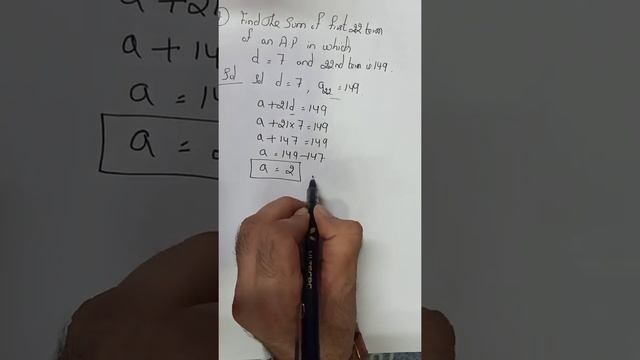 Find the Sum of first 22 term
of an AP in which
d = 7 and 22nd term is 149.
Sol d = 7, a22 = 149
a + 21d = 149
a + 21×7 = 149
a + 147 = 149
a = 149 - 147
a = 2